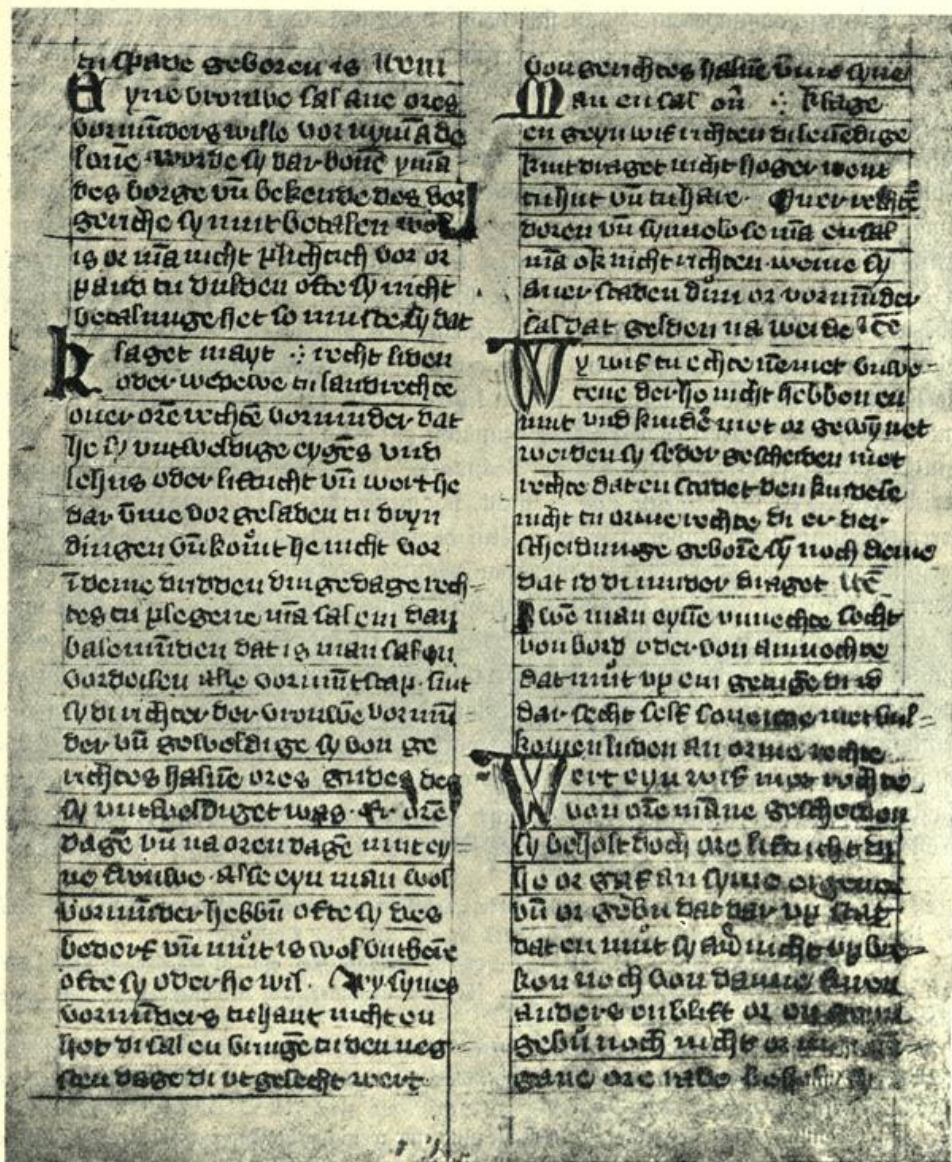 tu spade geboren is Item
Eyne vrouwe sal ane ores
vormūders wille vor nymāde
louē · worde sy dar bouē ymā
des borge vn̄ bekende des vor
gerichte sy mut betalen wol
is or mā nicht plichtich vor or
pand tu dulden ofte sy nicht
betalunge het so muste sy dat
klaget mayt ·:· recht liden
oder wedewe tu landrechte
ouer orē rechtē vormūder dat
he sy untweldige eygēs vnd
lehns oder liftucht vn̄ wert he
dar v̄me vor geladen tu dryn
dingen vn̄ komt he nicht vor
ī deme drudden dinge dage rech=
tes tu plegene mā sal en dar
balemūden dat is man sal en
vordeilen alle vormūtscap · sint
sy di richter der vrouwē vormū
der vn̄ geweldige sy von ge
richtes haluē ores gudes des
sy untweldiget was · Er orē
dagē vn̄ na oren dagē mut ey=
ne vrouwe · alse eyn man wol
vormūder hebbn̄ ofte sy des
bedorf vn̄ mūt is wol untberē
ofte sy oder he wil · Wy synes
vormūders tuhant nicht en
het di sal en bringē tu den neg=
sten dage di ut gelecht wert
von gerichtes haluē v̄me syne
Man en sal on̄ ·:· klage
en geyn wif richten di leuēdige
kint draget nicht hoger went
tu hut vn̄ tu hare · Ouer rechtē
doren vn̄ synnelose mā en sal
mā ok nicht richten · weme sy
auer scaden dun or vormūder
sal dat gelden na werde Itē
Wy wif tu echte nēmet vnwe=
tene der he nicht hebben en
mut vnd kindē met or gewȳnet
werden sy seder gescheiden met
rechte dat en scadet den kindere
nicht tu orme rechte di er der
scheidunge geborē sȳ noch deme
dat id di muder draget Itē
Swē man eynē vnechte secht
von bord oder von ammechte
dat mūt up em getugē di id
dar secht self seuende met vul=
komen luden an orme rechte
Wert eyn wif met rechte
von orē māne gescheden
sy beholt doch ore liftucht di
he or gaf an syme eygene
vn̄ or gebu dat dar up stat
dat en mūt sy auer nicht up bre=
ken noch von danne vuren
anders en blift or en geyn
gebu noch nicht or morgen
gaue ore rade behelt sy